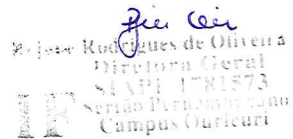 Rodrigues de Oliveira
Diretora Geral
SIAPE 1781573
IF Sertão Pernambucano
Campus Ouricuri